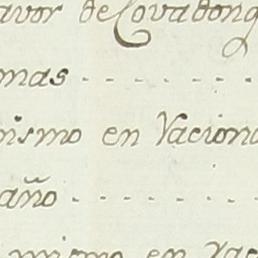 avor de Covadong
mas
nismo en Vaciona
año
mismo en Vac